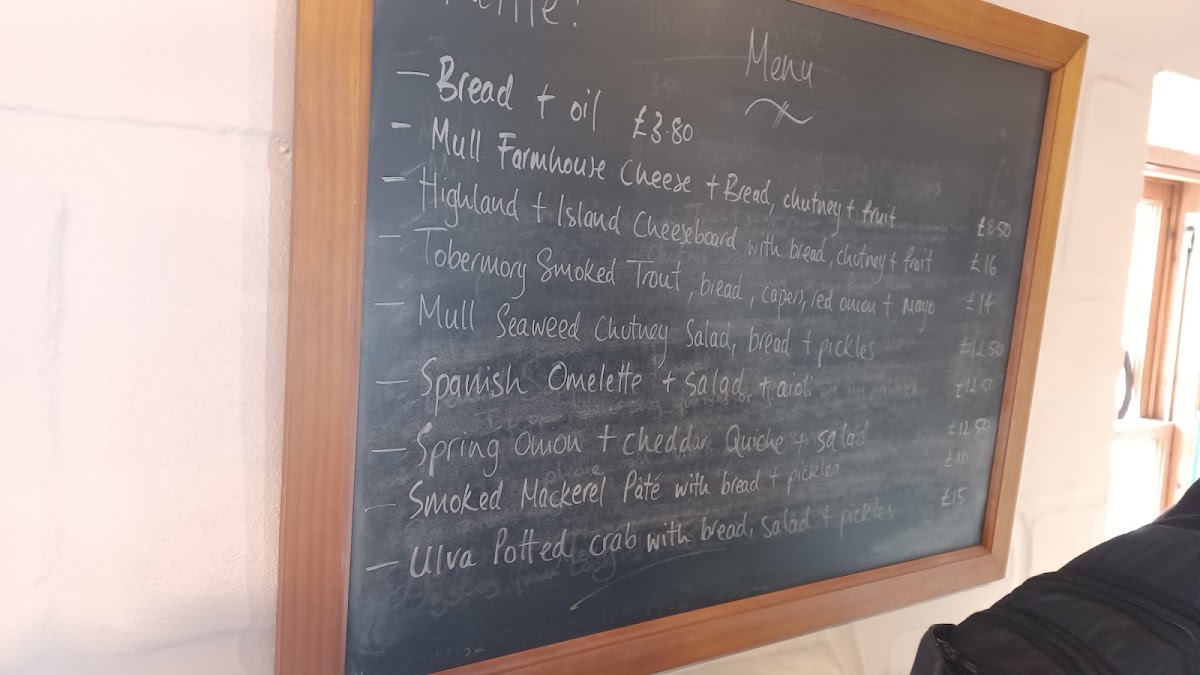 Menu
- Bread + oil £3.80
- Mull Farmhouse Cheese + Bread, chutney + fruit £8.50
- Highland + Island Cheeseboard with bread, chutney + fruit £16
- Tobermory Smoked Trout, bread, capers, red onion + mayo £14
- Mull Seaweed Chutney Salad, bread + pickles £12.50
- Spanish Omelette + salad + aioli £12.50
- Spring Onion + cheddar Quiche + salad £12.50
- Smoked Mackerel Pâté with bread + pickles £10
- Ulva Potted crab with bread, salad + pickles £15